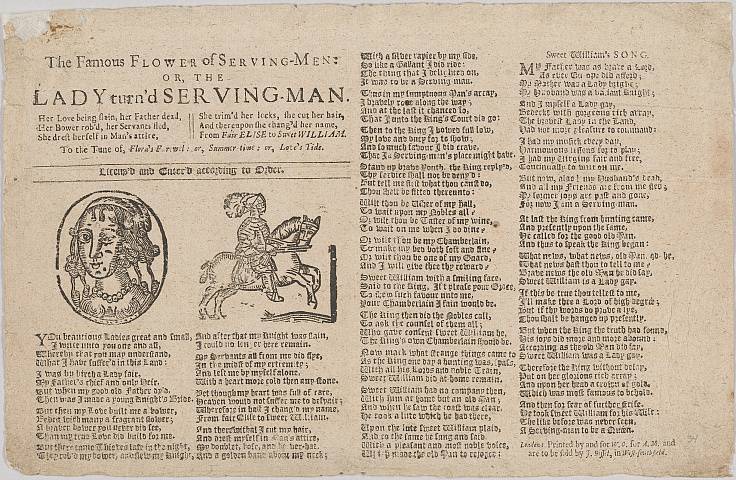 The Famous FLOWER of SERVING-MEN:
OR, THE
LADY turn'd SERVING-MAN.
Her Love being slain, her Father dead,
Her Bower rob'd, her Servants fled,
She drest herself in Man's attire,
She trim'd her locks, she cut her hair,
And thereupon she chang'd her name,
From Fair ELISE to Sweet WILLIAM.
To the Tune of, Flora's Farewel: or, Summer-time: or, Love's Tide.
Licens'd and Enter'd according to Order.
YOu beautious Ladies great and small,
I write unto you one and all,
Whereby that you may understand,
What I have suffer'd in this Land:
I was by birth a Lady fair,
My Father's chief and only Heir,
But when my good old Father dy'd,
Then was I made a young Knight's Bride.
But then my Love built me a bower,
Bedeckt with many a fragrant flower;
A braver bower you never did see,
Than my true Love did build for me.
But there came Thieves late in the night,
They rob'd my bower, and slew my Knight,
And after that my Knight was slain,
I could no longer there remain.
My Servants all from me did flye,
In the midst of my extremity;
And left me by myself alone,
With a heart more cold then any stone.
Yet though my heart was full of care,
Heaven would not suffer me to despair;
Wherefore in hast I chang'd my name,
From fair Elise to Sweet William.
And therewithal I cut my hair,
And drest myself in Man's attire,
My doublet, hose, and bever-hat,
And a golden band about my neck;
With a silver rapier by my side,
So like a Gallant I did ride:
The thing that I delighted on,
It was to be a Serving-man.
Thus in my sumptuous Man's array,
I bravely rode along the way;
And at the last it chanced so,
That I unto the King's Court did go:
Then to the King I bowed full low,
My love and duty for to show,
And so much favour I did crave,
That I a Serving-man's place might have.
Stand up brave Youth, the King reply'd,
Thy service shall not be deny'd:
But tell me first what thou canst do,
Thou shalt be fitted thereunto:
Wilt thou be Usher of my Hall,
To wait upon my Nobles all?
Or wilt thou be Taster of my wine,
To wait on me when I do dine?
Or wilt thou be my Chamberlain,
To make my bed both soft and fine?
Or wilt thou be one of my Guard,
And I will give thee thy reward?
Sweet William with a smiling face,
Said to the King, If't please your Grace,
To show such favour unto me,
Your Chamberlain I fain would be.
The King then did the Nobles call,
To ask the counsel of them all;
Who gave consent Sweet William he,
The King's own Chamberlain should be.
Now mark what strange things came to pass,
As the King one day a hunting was,
With all his Lords and noble Train,
Sweet William did at home remain.
Sweet William had no company then,
With him at home but an old man;
And when he saw the coast was clear,
He took a lute which he had there,
Upon the lute Sweet William plaid,
And to the same he sung and said
With a pleasant and most noble voice,
Which made the old Man to rejoice:
Sweet William's SONG.
MY Father was as brave a Lord,
As ever Europe did afford;
My Mother was a Lady bright;
My Husband was a valiant Knight:
And I myself a Lady gay,
Bedeckt with gorgeous rich array,
The bravest Lady in the Land,
Had not more pleasure to command:
I had my musick every day,
Harmonious lessons for to play;
I had my Virgins fair and free,
Continually to wait on me.
But now, alas! my Husband's dead,
And all my Friends are from me fled;
My former joys are past and gone,
For now I am a Serving-man.
At last the King from hunting came,
And presently upon the same,
He called for the good old Man,
And thus to speak the King began:
What news, what news, old Man, qd. he,
What news hast thou to tell to me?
Brave news the old Man he did say,
Sweet William is a Lady gay.
If this be true thou tellest to me,
I'll make thee a Lord of high degree;
But if thy words do prove a lye,
Thou shalt be hanged up presently.
But when the King the truth had found,
His joys did more and more abound:
According as the old Man did say,
Sweet William was a Lady gay.
Therefore the King without delay,
Put on her glorious rich array;
And upon her head a crown of gold,
Which was most famous to behold.
And then for fear of further strife,
He took Sweet William for his Wife:
The like before was never seen,
A Serving-man to be a Queen.
London: Printed by and for W. O. for A. M. and
are to be sold by J. Bissel, in West-smithfield.